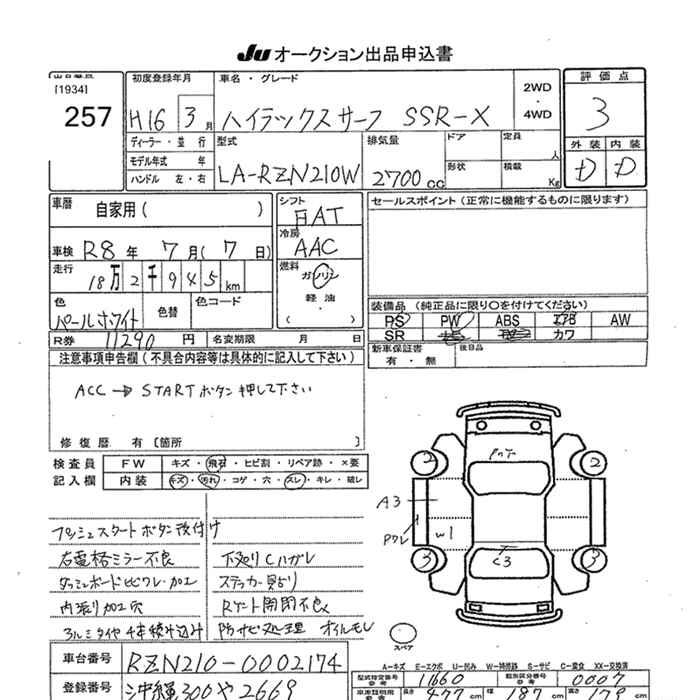 JU オークション出品申込書
[1934]
257
初度登録年月
H16 3月
車名・グレード
ハイラックスサーフ SSR-X
2WD
・
4WD
評価点
3
外装 内装
D D
ディーラー・並行
モデル年式 年
ハンドル 左・右
型式
LA-RZN210W
排気量
2700cc
ドア
形状
定員
人
積載
Kg
車歴 自家用( )
車検 R8年 7月(7日)
走行 18万2千945km
色 パールホワイト
色替
色コード
R券 11290円
名変期限 月 日
シフト
FAT
冷房
AAC
燃料
ガソリン
軽油
( )
セールスポイント(正常に機能するものに限ります)
装備品(純正品に限り○を付けてください)
PS PW ABS エアB AW
SR カワ
新車保証書
有・無
後日品
注意事項申告欄(不具合内容等は具体的に記入して下さい)
ACC → STARTボタン押して下さい
修復歴 有〔箇所 〕
検査員
記入欄
FW キズ・飛石・ヒビ割・リペア跡・×要
内装 キズ・汚れ・コゲ・穴・スレ・キレ・破レ
プッシュスタートボタン後付け
右電格ミラー不良
ダッシュボードヒビワレ・加工
内張り加工穴
アルミタイヤ4本積み込み
下廻りCハガレ
ステッカー貼り
Rゲート開閉不良
防サビ処理 オイルモレ
2 2
A3
Pワレ
W1
C3
3 3
スペア
A-キズ E-エクボ U-凹み W-補修跡 S-サビ C-腐食 XX-交換済
車台番号 RZN210-0002174
登録番号 沖縄300や2669
型式指定番号
参考
11660
類別区分番号
参考
0007
車検証明用
参考
長さ 477cm
幅 187cm
高さ 179